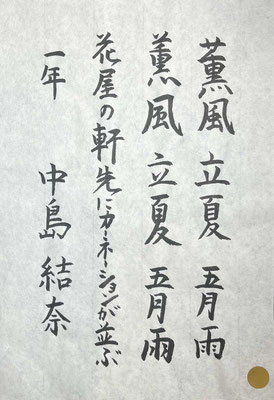 薫風 立夏 五月雨
薫風 立夏 五月雨
花屋の軒先にカーネーションが並ぶ
一年 中島結奈